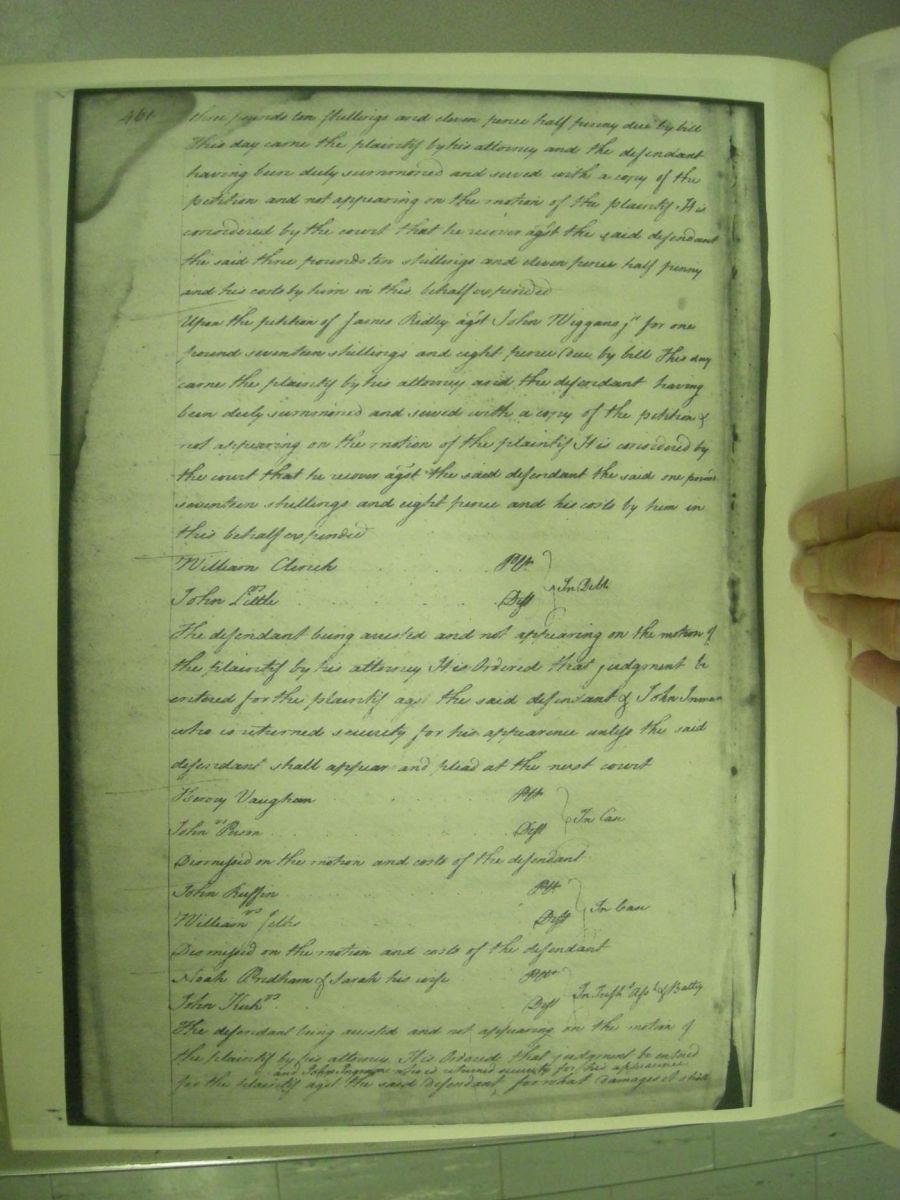 461
three pounds ten shillings and eleven pence half penny due by bill
This day came the plaintif by his attorney and the defendant
having been duly summoned and served with a copy of the
petition and not appearing on the motion of the plaintif It is
considered by the court that he recover agst the said defendant
the said three pounds ten shillings and eleven pence half penny
and his costs by him in this behalf expended
Upon the petition of James Ridley agst John Wiggans jr for one
pound seventeen shillings and eight pence due by bill This day
came the plaintif by his attorney and the defendant having
been duly summoned and served with a copy of the petition &
not appearing on the motion of the plaintif It is considered by
the court that he recover agst the said defendant the said one pound
seventeen shillings and eight pence and his costs by him in
this behalf expended
William Clerich Pltf
vs In Debt
John Little Deft
The defendant being arrested and not appearing on the motion of
the plaintif by his attorney It is Ordered that judgment be
entered for the plaintif agst the said defendant & John Inman
who is returned security for his appearence unless the said
defendant shall appear and plead at the next court
Henry Vaughan Pltf
vs In Case
John Person Deft
Dismissed on the motion and costs of the defendant
John Ruffin Pltf
vs In Case
William Deft
Dismissed on the motion and costs of the defendant
Noah Pridham & Sarah his wife Pltfs
vs In Tresps Asst & Battry
John Deft
The defendant being arrested and not appearing on the motion of
the plaintif by his attorney It is Ordered that judgment be entered
and John Ingram who is returned security for his appearance
for the plaintif agst the said Defendant for what Damages